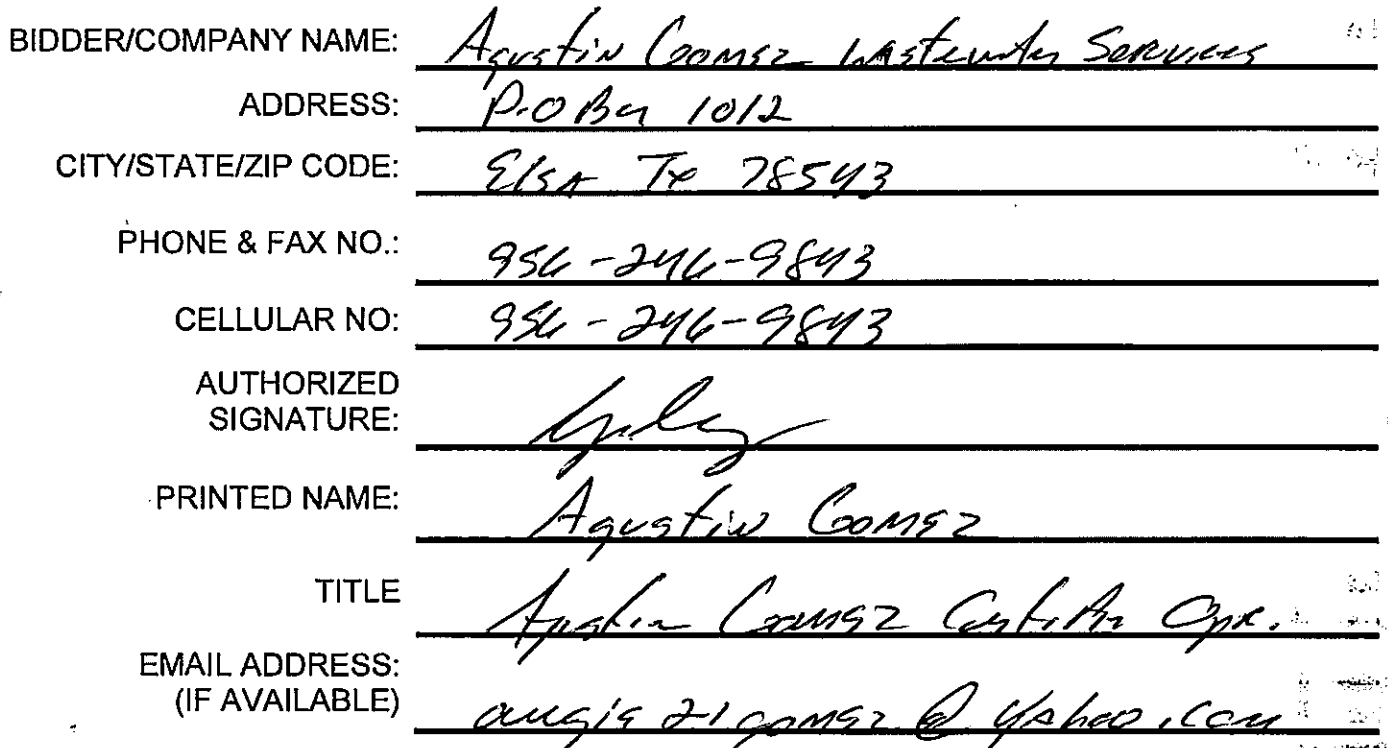 BIDDER/COMPANY NAME: Agustin Gomez Wastewater Services
ADDRESS: P.O Box 1012
CITY/STATE/ZIP CODE: Elsa Tx 78543
PHONE & FAX NO.: 956-246-9843
CELLULAR NO: 956-246-9843
AUTHORIZED
SIGNATURE:
PRINTED NAME: Agustin Gomez
TITLE Agustin Gomez Opr.
EMAIL ADDRESS:
(IF AVAILABLE) augie21gomez@yahoo.com